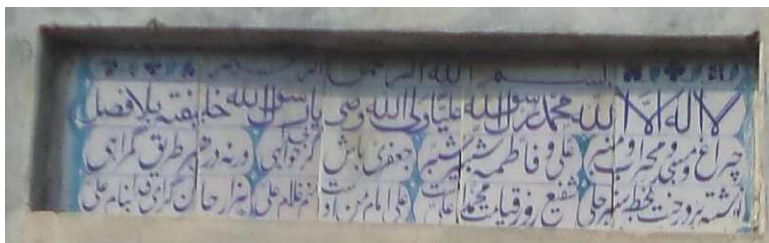 بسم الله الرحمن الرحیم
لا اله الا الله محمد رسول الله علیا ولی الله وصی رسول الله خلیفته بلا فصل
چراغ و مسجد و محراب و منبر علی و فاطمه شبیر و شبر جعفری باش گر خواهی ورنه در هر طریق گمراهی
نوشته بر درخت بخط سبز جلی شفیع روز قیامت محمد است علی امام من است و منم غلام علی هزار جان گرامی بنام علی